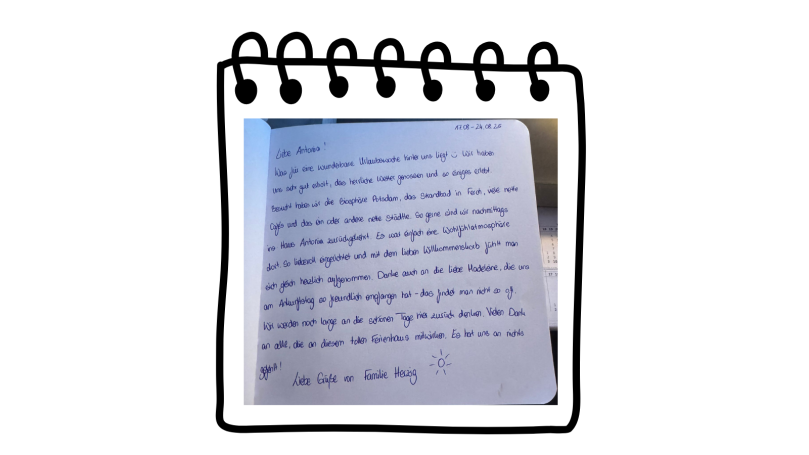 17.08 - 24.08.20
Liebe Antonia!
Was für eine wunderbare Urlaubswoche hinter uns liegt ☺ Wir haben
uns sehr gut erholt, das herrliche Wetter genossen und so einiges erlebt.
Besucht haben wir die Biosphäre Potsdam, das Strandbad in Ferch, viele nette
Cafés und das ein oder andere nette Städtle. So gerne sind wir nachmittags
ins Haus Antonia zurückgekehrt. Es war einfach eine Wohlfühlatmosphäre
dort. So liebevoll eingerichtet und mit dem lieben Willkommenskorb fühlt man
sich gleich herzlich aufgenommen. Danke auch an die liebe Madeleine, die uns
am Ankunftstag so freundlich empfangen hat - das findet man nicht so oft.
Wir werden noch lange an die schönen Tage hier zurück denken. Vielen Dank
an alle, die an diesem tollen Ferienhaus mitwirken. Es hat uns an nichts
gefehlt!
Liebe Grüße von Familie Herzig